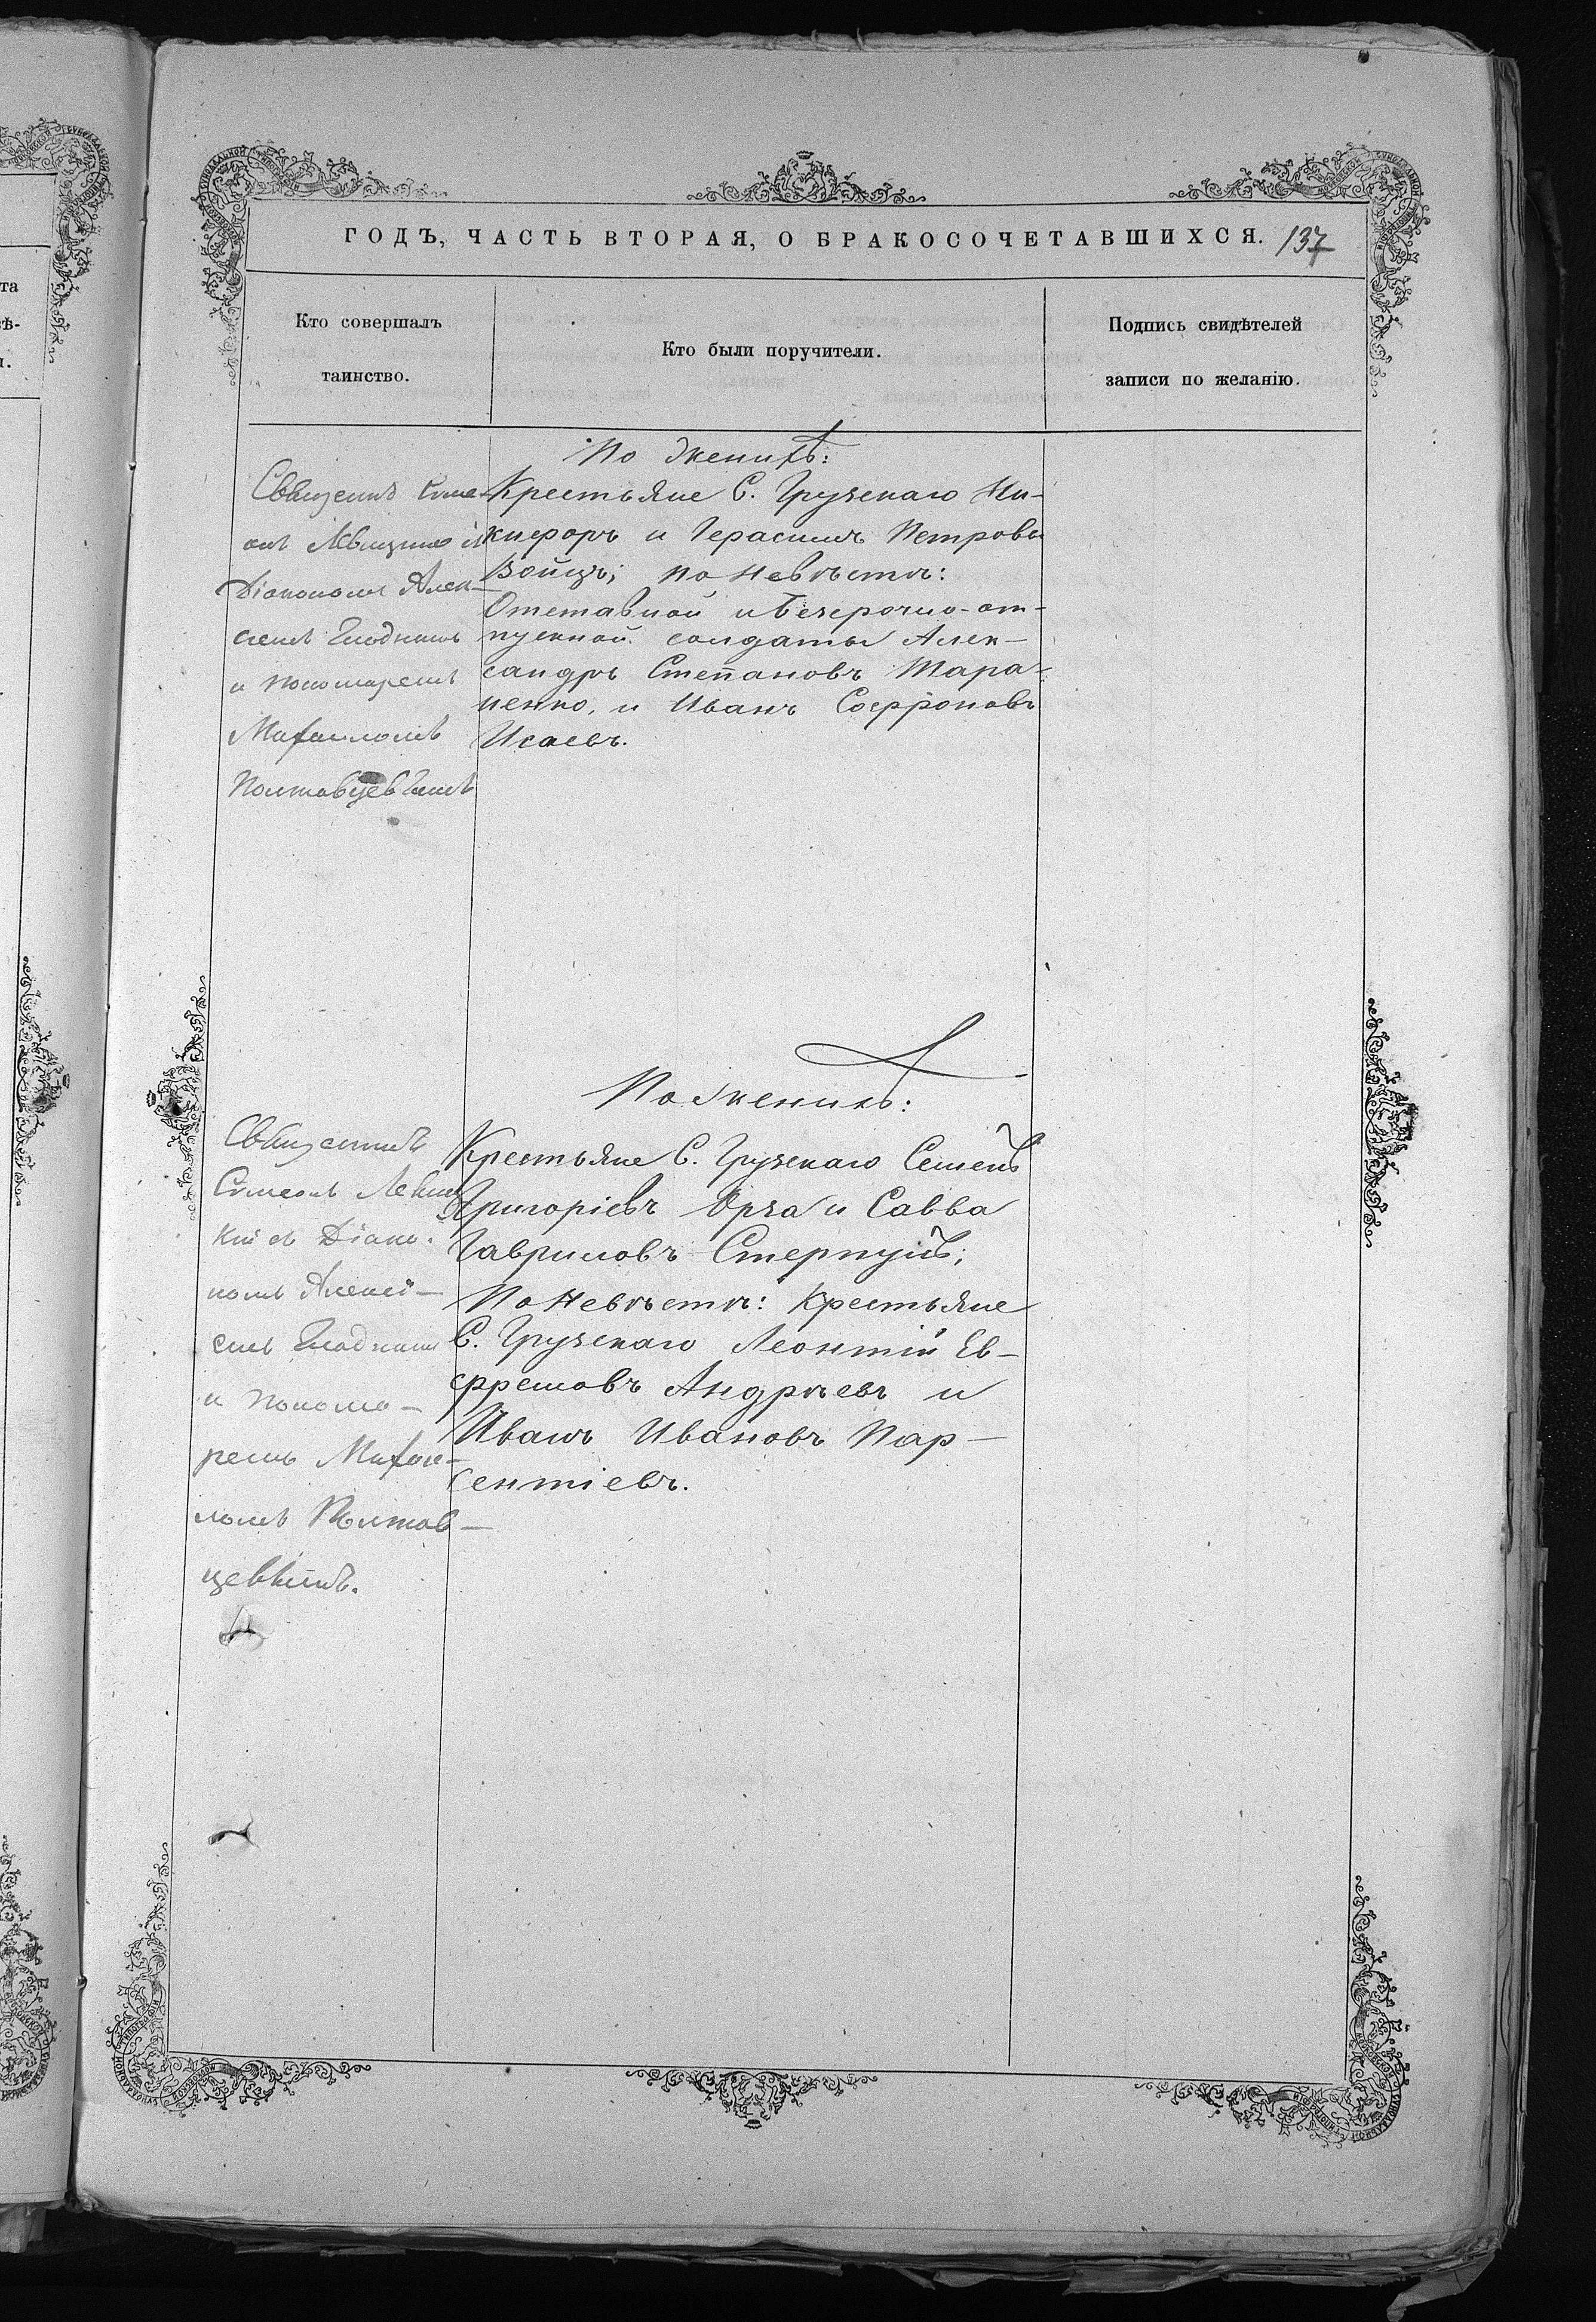 ГОДЪ, ЧАСТЬ ВТОРАЯ, О БРАКОСОЧЕТАВШИХСЯ. 137
Кто совершалъ
таинство.
Кто были поручители.
Подпись свидѣтелей
записи по желанію.
Священникъ Симе-
онъ Левицкій съ
Діакономъ Алек-
сѣемъ
и пономаремъ
Михаиломъ
Полтавцевымъ
По женихѣ:
Крестьяне С. Грузскаго Ни-
кифоръ и Герасимъ Петровы
Войцъ; по невѣстѣ:
Отставной и безсрочно-от-
пускной солдаты Алек-
сандръ Степановъ Тара-
ненко, и Иванъ Софроновъ
Исаевъ.
Священникъ
Симеонъ Левиц
кій съ Діако-
номъ Алексѣ-
емъ
и понома-
ремъ Михаи-
ломъ Полтав-
цевымъ.
По женихѣ:
Крестьяне С. Грузскаго Семенъ
Григоріевъ Орза и Савва
Гавриловъ Стерпулъ;
По невѣстѣ: Крестьяне
С. Грузскаго Леонтій Ев-
фремовъ Андрѣевъ и
Иванъ Ивановъ Пар-
сентіевъ.